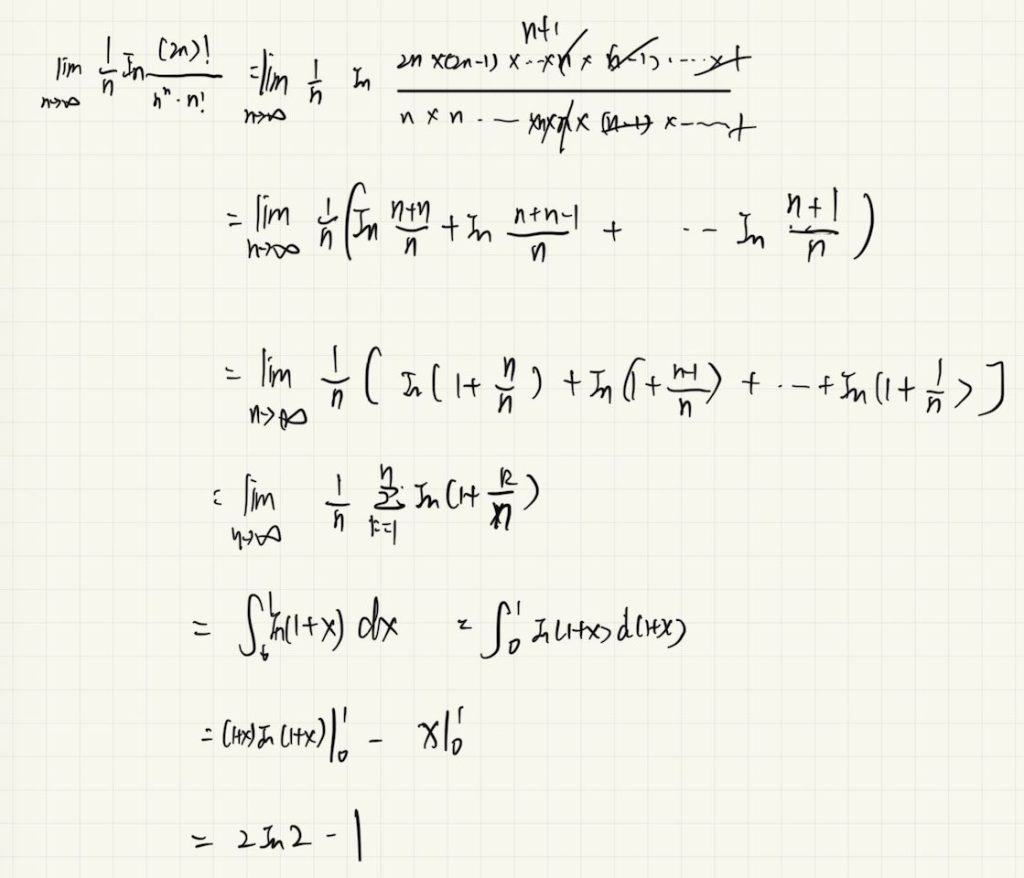 lim n→∞ 1/n ln (2n)!/(n^n · n!) = lim n→∞ 1/n ln (2n×(2n-1)×···×(n+1)×n×(n-1)·····×1)/(n×n·–– ×n×n×(n-1)×-----1)
= lim n→∞ 1/n (ln (n+n)/n + ln (n+n-1)/n + ·· ln (n+1)/n)
= lim n→∞ 1/n ( ln(1+ n/n) + ln(1+ (n-1)/n) + ··· + ln(1+ 1/n) ]
= lim n→∞ 1/n ∑_{k=1}^{n} ln(1+ k/n)
= ∫_0^1 ln(1+x) dx = ∫_0^1 ln(1+x) d(1+x)
= (1+x) ln(1+x)|_0^1 - x|_0^1
= 2 ln 2 - 1